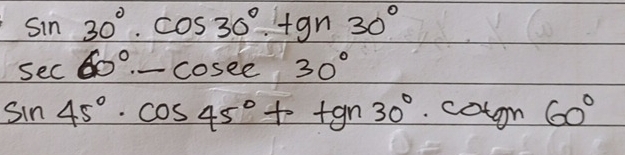 sin 30°. cos 30°. tgn 30°
sec 60°.- cosec 30°
sin 45°. cos 45° + tgn 30°. cotgn 60°